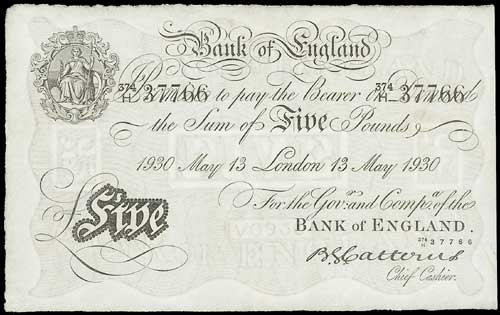 Bank of England
374/H 37766 374/H 37766
Promise to pay the Bearer on Demand
the Sum of Five Pounds
1930 May 13 London 13 May 1930
For the Govr. and Compa. of the
BANK of ENGLAND.
374/H 37766
Five
B G Catterns
Chief Cashier.